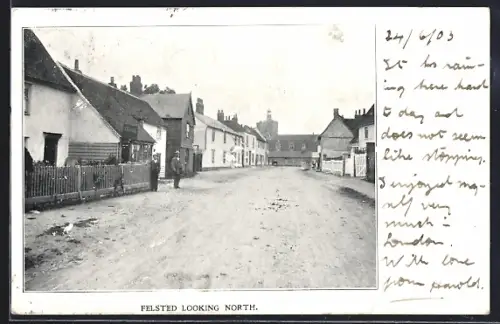 24/6/03
It is rain-
ing here hard
to day and
does not seem
like stopping.
I enjoyed my-
self very
much in
London.
With love
from Harold.
FELSTED LOOKING NORTH.